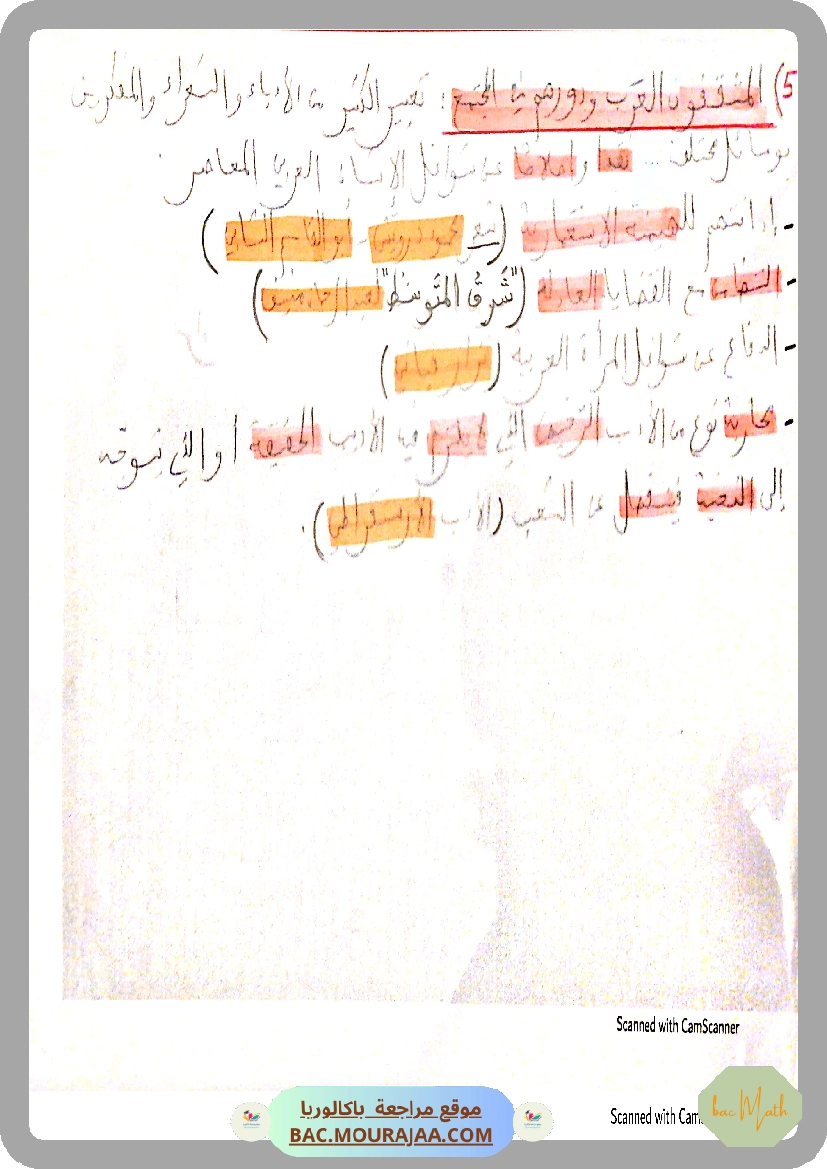 5) المثقفون العرب ودورهم في المجتمع : تعبير الكثير من الأدباء والشعراء والمفكرين
بوسائل مختلفة ... نقدا وإصلاحا عن شواغل الإنسان العربي المعاصر.
- إدانتهم للهيمنة الاستعمارية (شعر محمود درويش، أبو القاسم الشابي)
- التضامن مع القضايا العادلة ("شرق المتوسط" لعبد الرحمان منيف)
- الدفاع عن شواغل المرأة العربية (نزار قباني)
- محاربة نوع من الأدب الذي لا يلتزم فيه الأديب الحقيقة أو الذي يتوجه
إلى النخبة فينفصل عن الشعب (الأدب الأرستقراطي).
Scanned with CamScanner
موقع مراجعة باكالوريا
BAC.MOURAJAA.COM
Scanned with Cam
bac Math